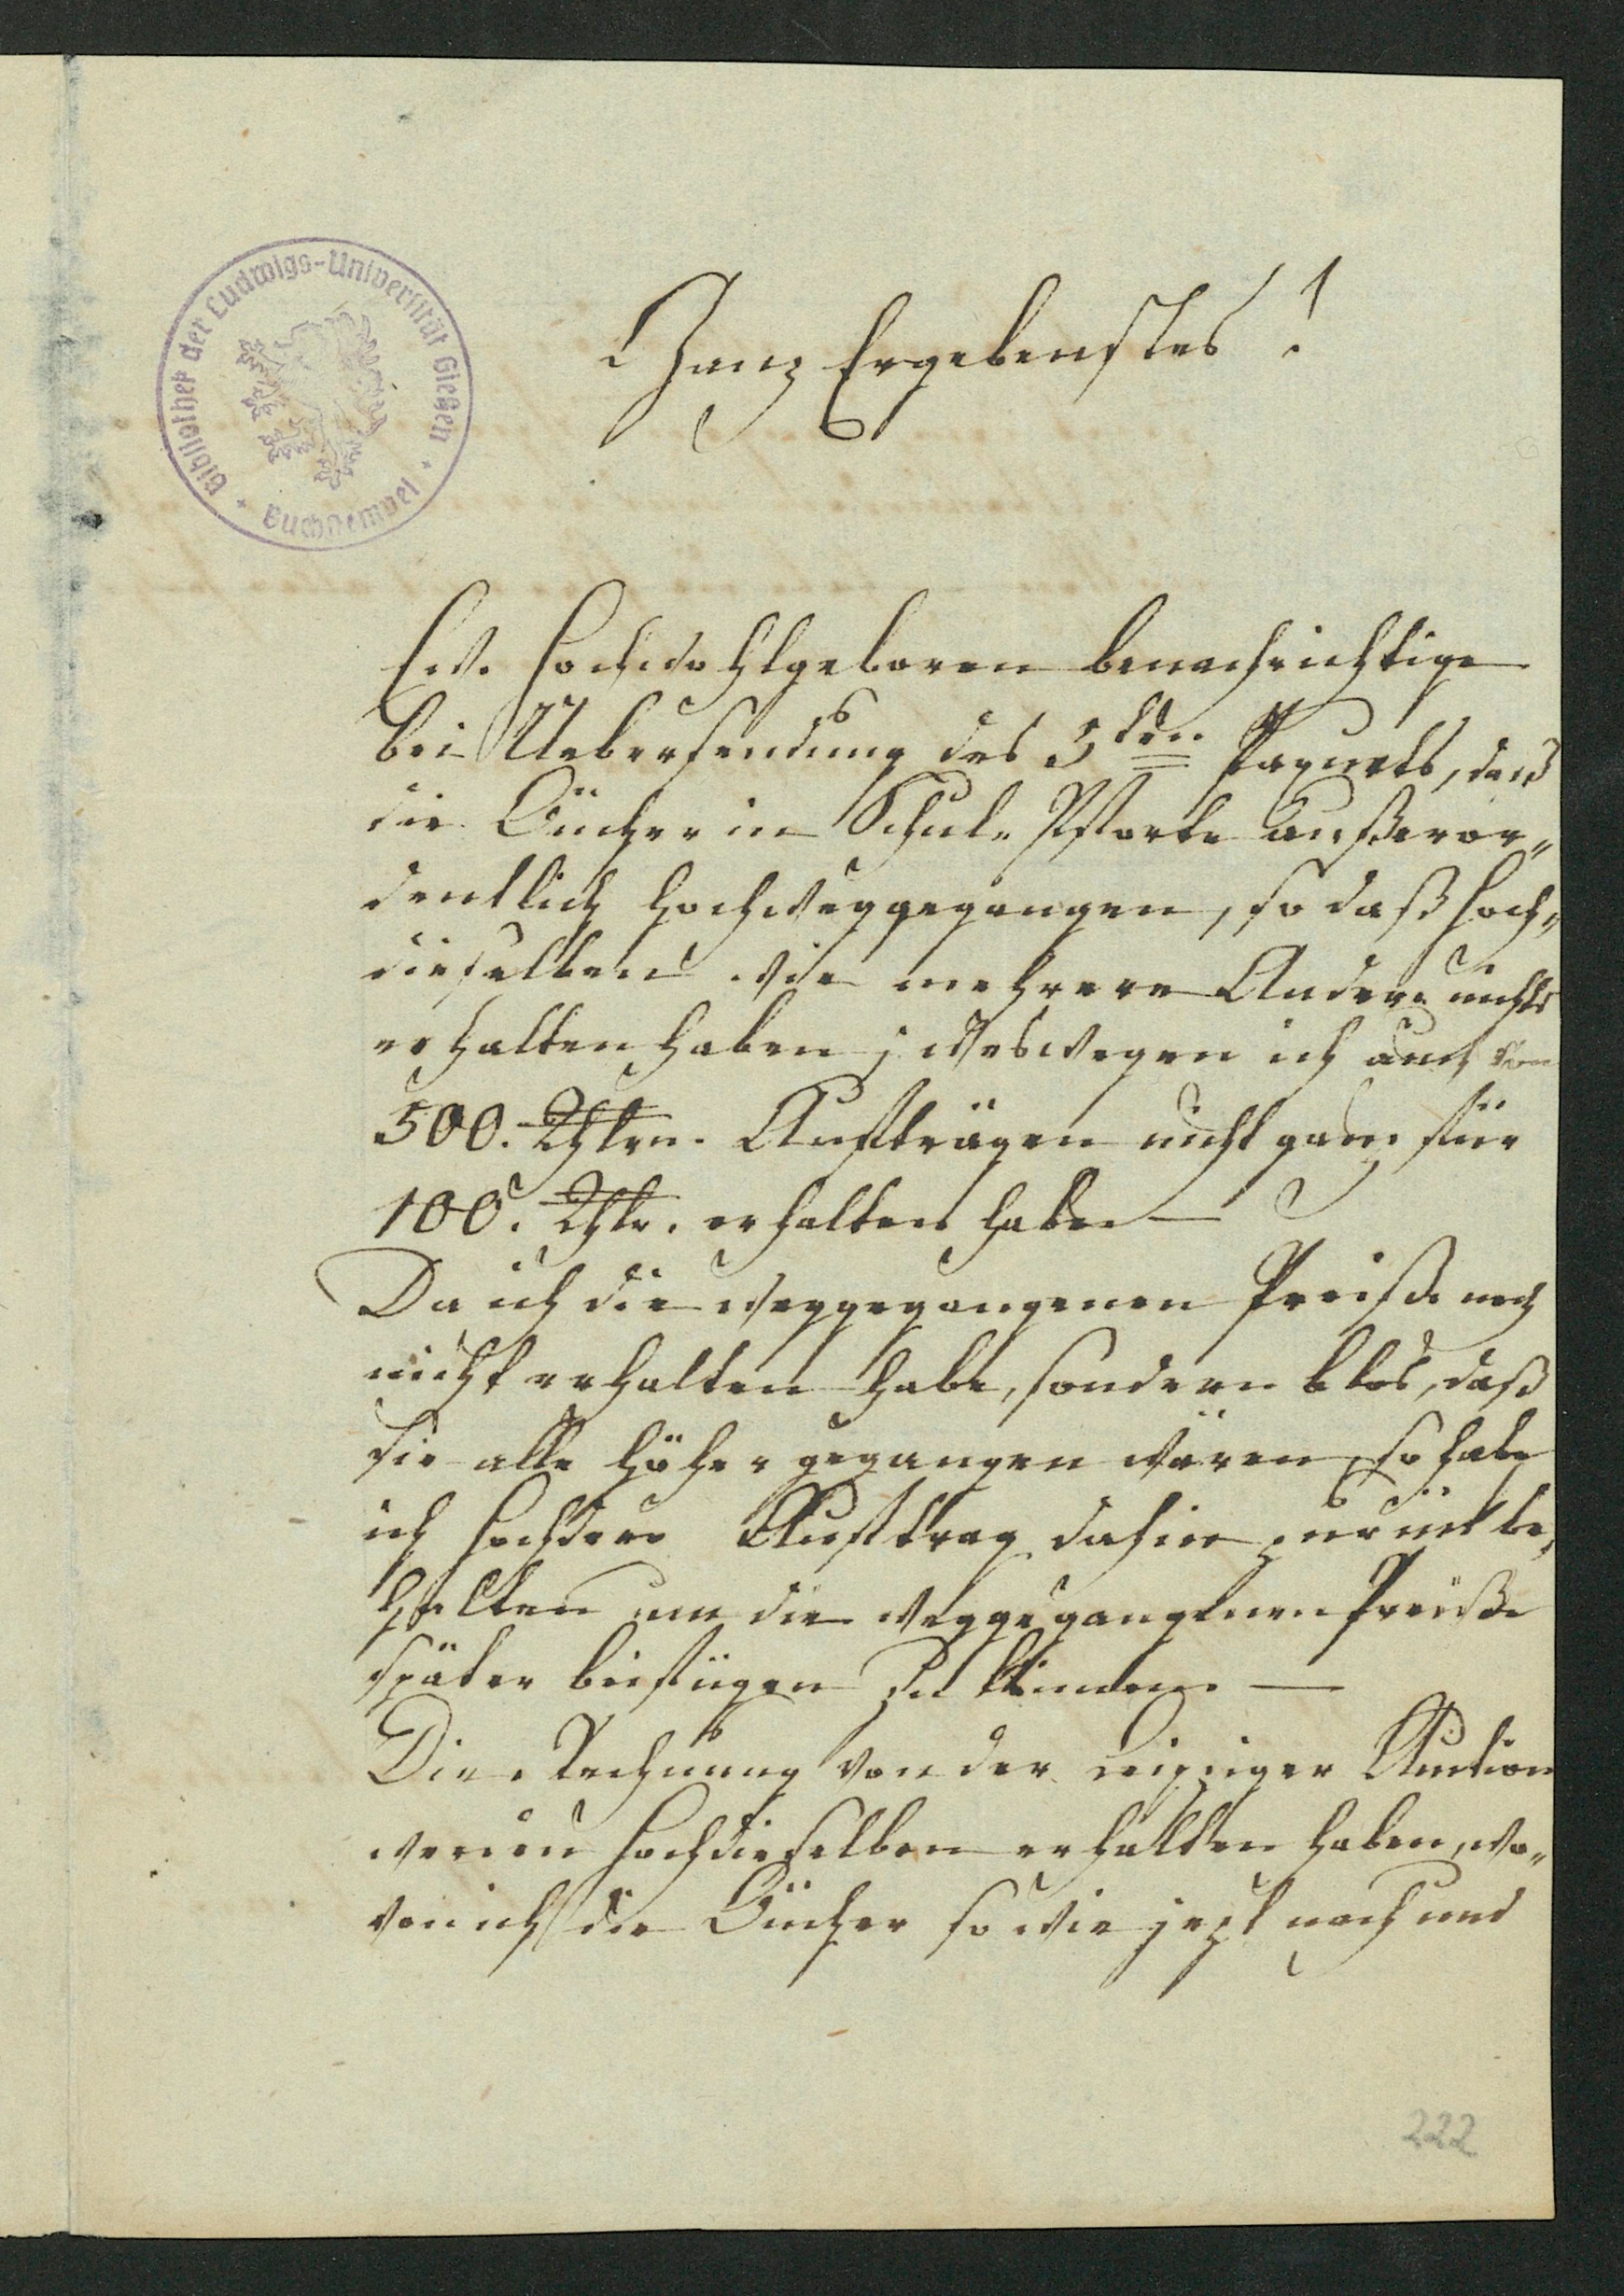 Bibliothek der Ludwigs-Universität Gießen
Buchstempel
Ganz Ergebenstes!
Ew. Hochwohlgeboren benachrichtige
bei Uebersendung des 5ten Paquets, daß
die Bücher in Schul-Pforte außeror„
dentlich hochweggegangen, so daß Hoch„
dieselben wie mehrere Andere nichts
erhalten haben; weswegen ich auch von
500. Thlrn. Aufträgen nicht ganz für
100. Thlr. erhalten habe —
Da ich die weggegangenen Preiße noch
nicht erhalten habe, sondern blos, daß
sie alle höher gegangen wären, so habe
ich Hochdero Aufttrag dahier zurückbe„
halten um die weggegangenen Preiße
später beifügen zu können. —
Die Rechnung von der Leipziger Auction
werden Hochdieselben erhalten haben, wo„
von ich die Bücher so wie jezt nach und
222